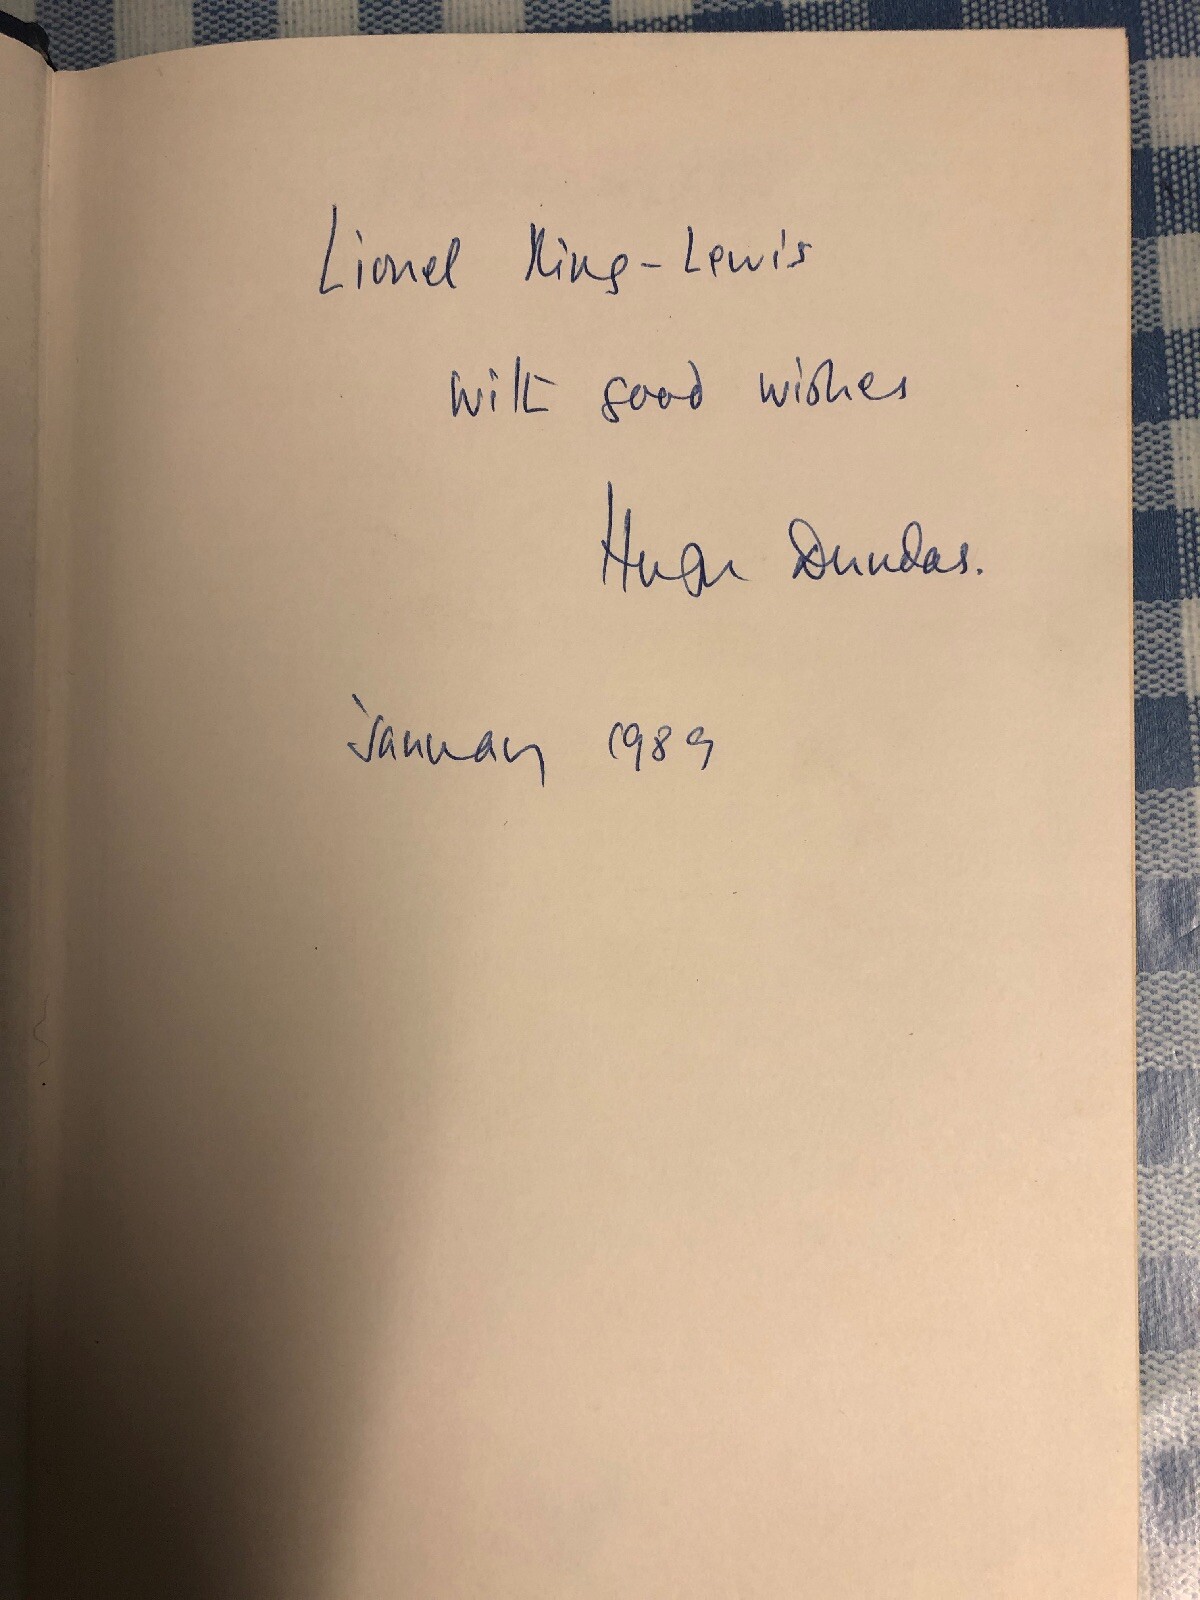 Lionel King-Lewis
with good wishes
Hugh Dundas.
January 1989